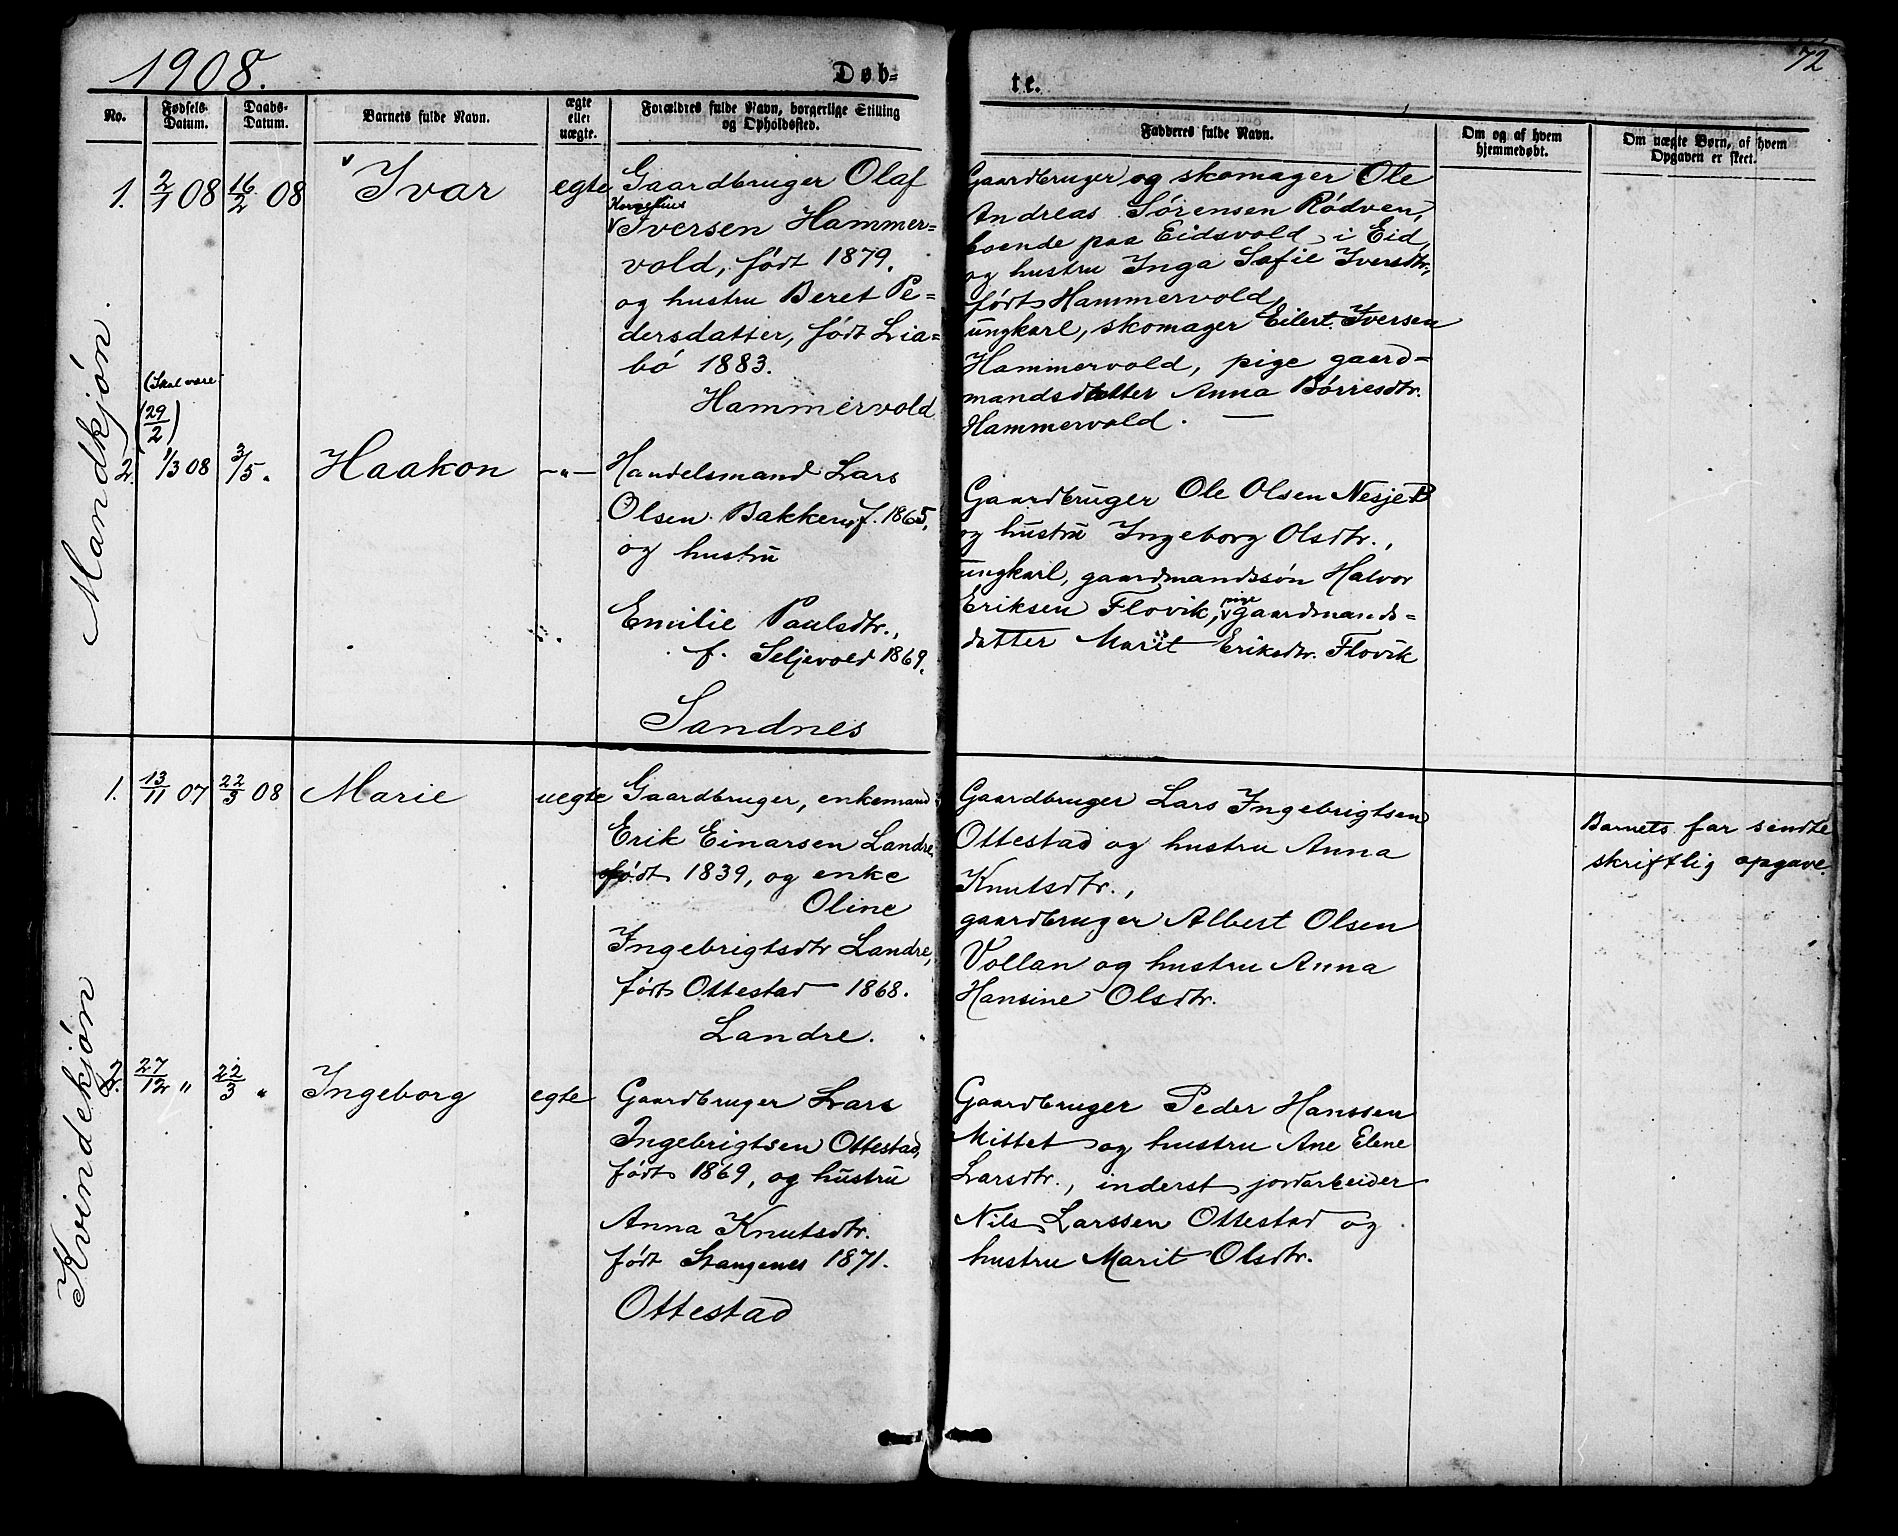 1908.
Døb-
te.
72
No.
Fødsels-
Datum.
Daabs-
Datum.
Barnets fulde Navn.
ægte
eller
uægte.
Forældres fulde Navn, borgerlige Stilling
og Opholdssted.
Fadderes fulde Navn.
Om og af hvem
hjemmedøbt.
Om uægte Børn, af hvem
Opgaven er skeet.
Mandkjøn.
1. 2/1 08 16/2 08 Ivar egte
Gaardbruger Olaf
Iversen Hammer=
vold, født 1879.
og hustru Beret Pe=
dersdatter, født Lia=
bø 1883.
Hammervold
Gaardbruger og skomager Ole
Andreas Sørensen Rødven,
boende paa Eidsvold i Eid,
og hustru Inga Sofie Iversdtr,
født Hammervold,
ungkarl, skomager Eilert Iversen
Hammervold, pige gaard=
mandsdatter Anna Børresdtr.
Hammervold.
(Skal være
29/2)
2. 1/3 08 3/5 " Haakon —"—
Handelsmand Lars
Olsen Bakken, f. 1865,
og hustru
Emilie Paulsdtr.,
f. Seljevold 1869.
Sandnes
Gaardbruger Ole Olsen Nesje
og hustru Ingeborg Olsdtr.,
ungkarl, gaardmandssøn Halvor
Eriksen Flovik, pige gaardmands-
datter Marit Eriksdtr. Flovik
Kvindekjøn
1. 13/11 07 22/3 08 Marie uegte
Gaardbruger, enkemand
Erik Einarsen Landre,
født 1839, og enke
Oline
Ingebrigtsdtr Landre,
født Ottestad 1868.
Landre.
Gaardbruger Lars Ingebrigtsen
Ottestad og hustru Anna
Knutsdtr.,
gaardbruger Albert Olsen
Vollan og hustru Anna
Hansine Olsdtr.
Barnets far sendte
skriftlig opgave.
2. 27/12 " 22/3 " Ingeborg egte
Gaardbruger Lars
Ingebrigtsen Ottestad,
født 1869, og hustru
Anna Knutsdtr.
født Stangenes 1871.
Ottestad
Gaardbruger Peder Hanssen
Mittet og hustru Ane Elene
Larsdtr., inderst jordarbeider
Nils Larssen Ottestad og
hustru Marit Olsdtr.